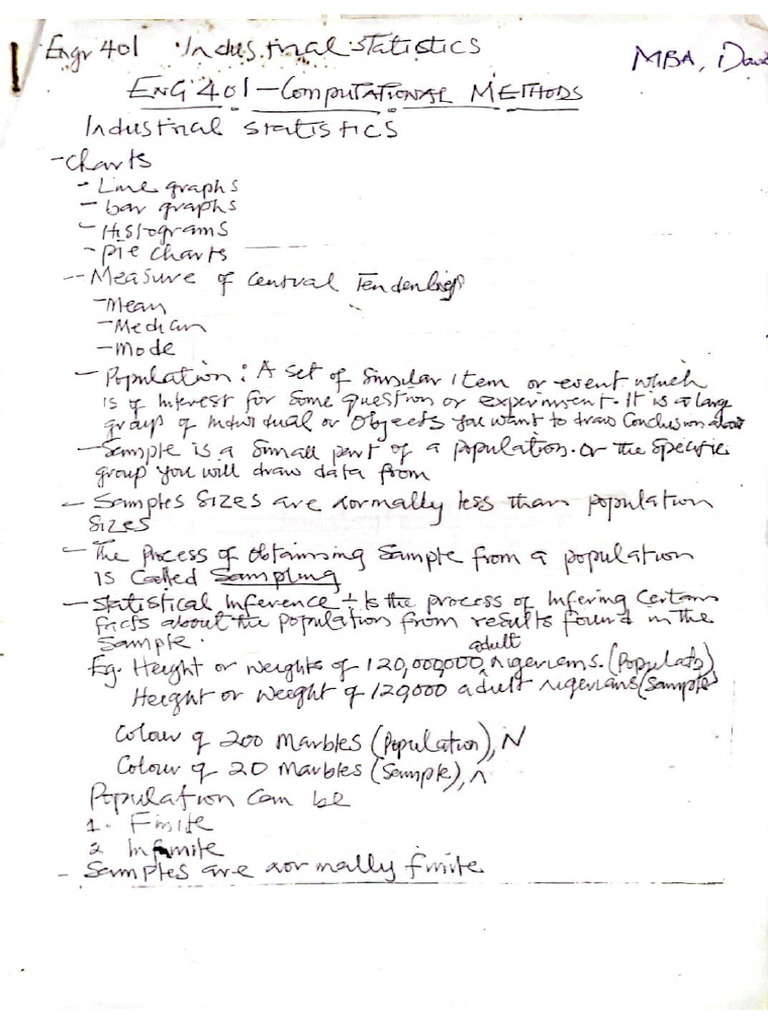 Engr 401 Industrial statistics
MBA, Davi
ENG 401 - COMPUTATIONAL METHODS
Industrial statistics
- Charts
- Line graphs
- bar graphs
- Histograms
- pie charts
- Measure of Central Tendencies
- Mean
- Median
- Mode
- Population: A set of similar item or event which
is of interest for some question or experiment. It is a large
group of individual or objects you want to draw conclusion about
- Sample is a small part of a population. or the specific
group you will draw data from
- Samples sizes are normally less than population
sizes
- The process of obtaining sample from a population
is called Sampling
- Statistical inference :- Is the process of infering certain
facts about the population from results found in the
sample.
Eg. Height or weights of 120,000,000 adult nigerians. (Populatn)
Height or weight of 120,000 adult nigerians (Sample)
Colour of 200 Marbles (Population), N
Colour of 20 Marbles (Sample), n
Population can be
1. Finite
2 Infinite
- Samples are normally finite